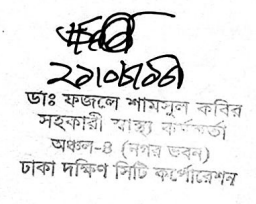 ডাঃ ফজলে শামসুল কবির
সহকারী স্বাস্থ্য কর্মকর্তা
অঞ্চল-৪ (নগর ভবন)
ঢাকা দক্ষিণ সিটি কর্পোরেশন